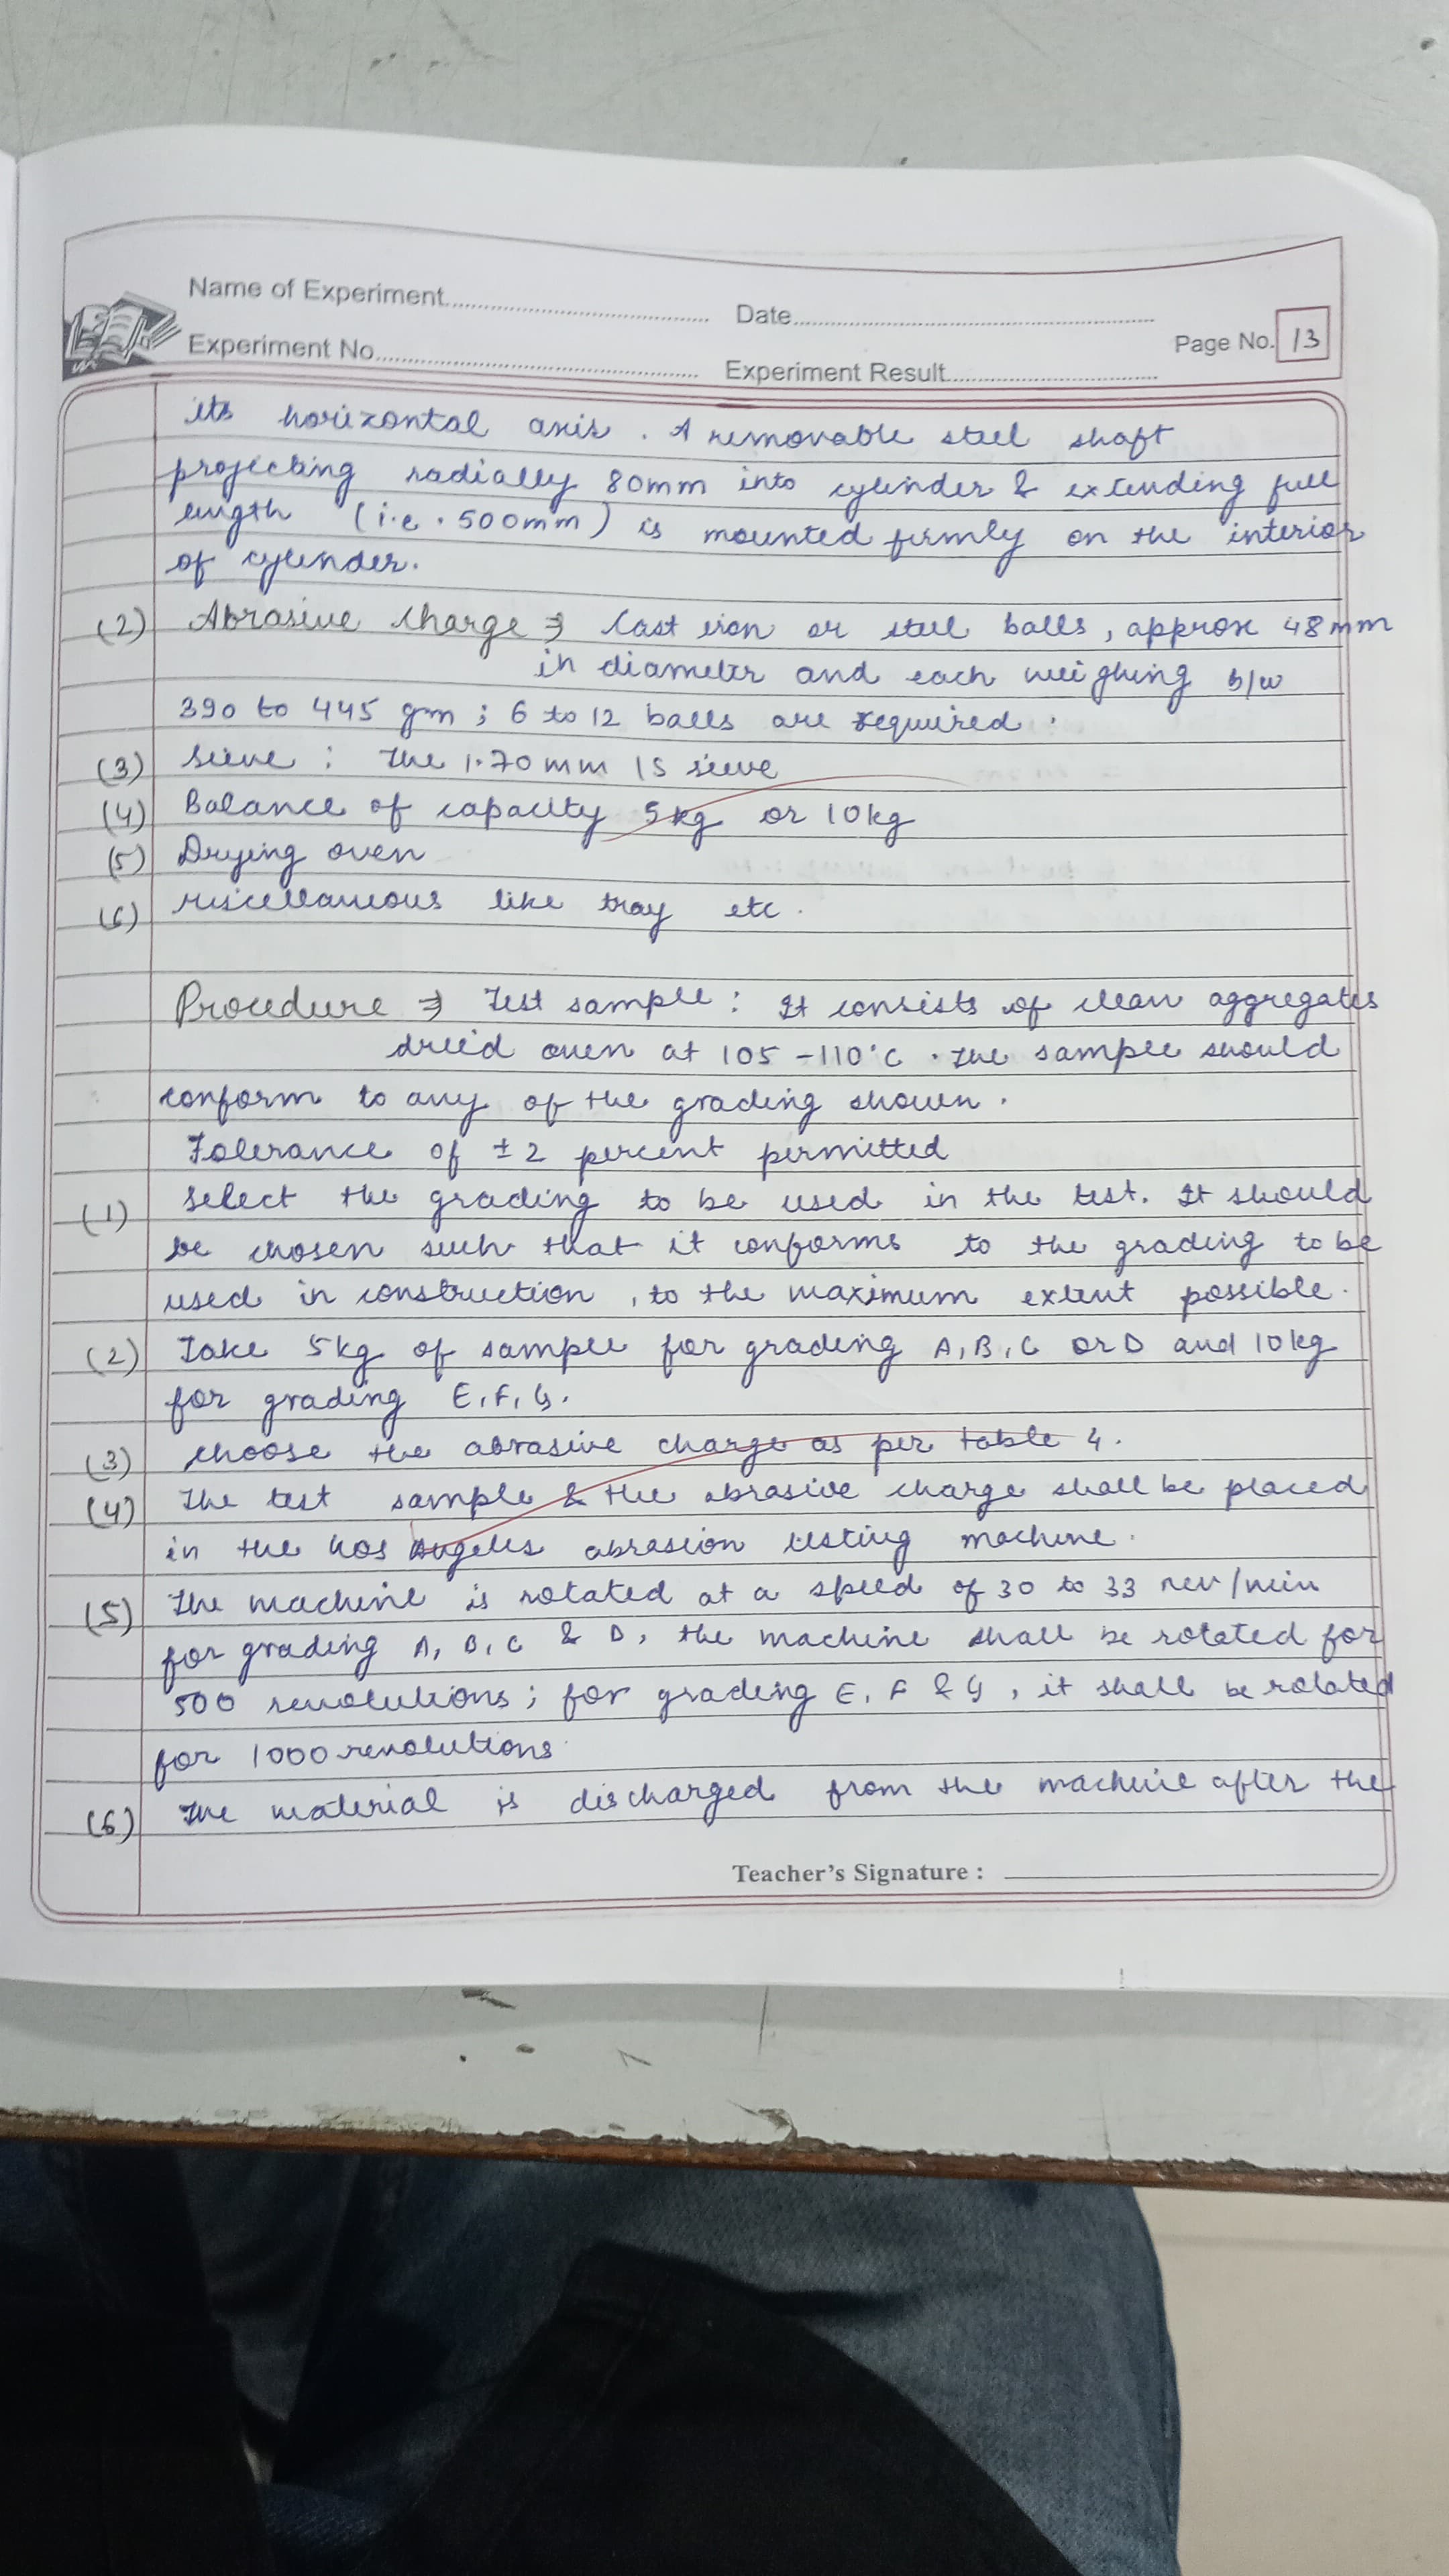 Name of Experiment
Date
Experiment No.
Experiment Result
Page No. 13
its horizontal axis. A removable steel shaft
projecting radially 80mm into cylinder & extending full
length (i.e. 500mm) is mounted firmly on the interior
of cylinder.
(2) Abrasive Charge ⇒ Cast iron or steel balls, approx 48mm
in diameter and each weighing b/w
390 to 445 gm; 6 to 12 balls are required.
(3) Sieve : The 1.70mm IS sieve
(4) Balance of capacity 5kg or 10kg
(5) Drying oven
(6) Miscellaneous like tray etc.
Procedure ⇒ Test sample: It consists of clean aggregates
dried oven at 105-110°C. The sample should
conform to any of the grading shown.
Tolerance of ±2 percent permitted
(1) Select the grading to be used in the test. It should
be chosen such that it conforms to the grading to be
used in construction, to the maximum extent possible.
(2) Take 5kg of sample for grading A, B, C or D and 10kg
for grading E, F, G.
(3) Choose the abrasive charge as per table 4.
(4) The test sample & the abrasive charge shall be placed
in the Los Angeles abrasion testing machine.
(5) The machine is rotated at a speed of 30 to 33 rev/min
for grading A, B, C & D, the machine shall be rotated for
500 revolutions; for grading E, F & G, it shall be rotated
for 1000 revolutions
(6) The material is discharged from the machine after the
Teacher's Signature :